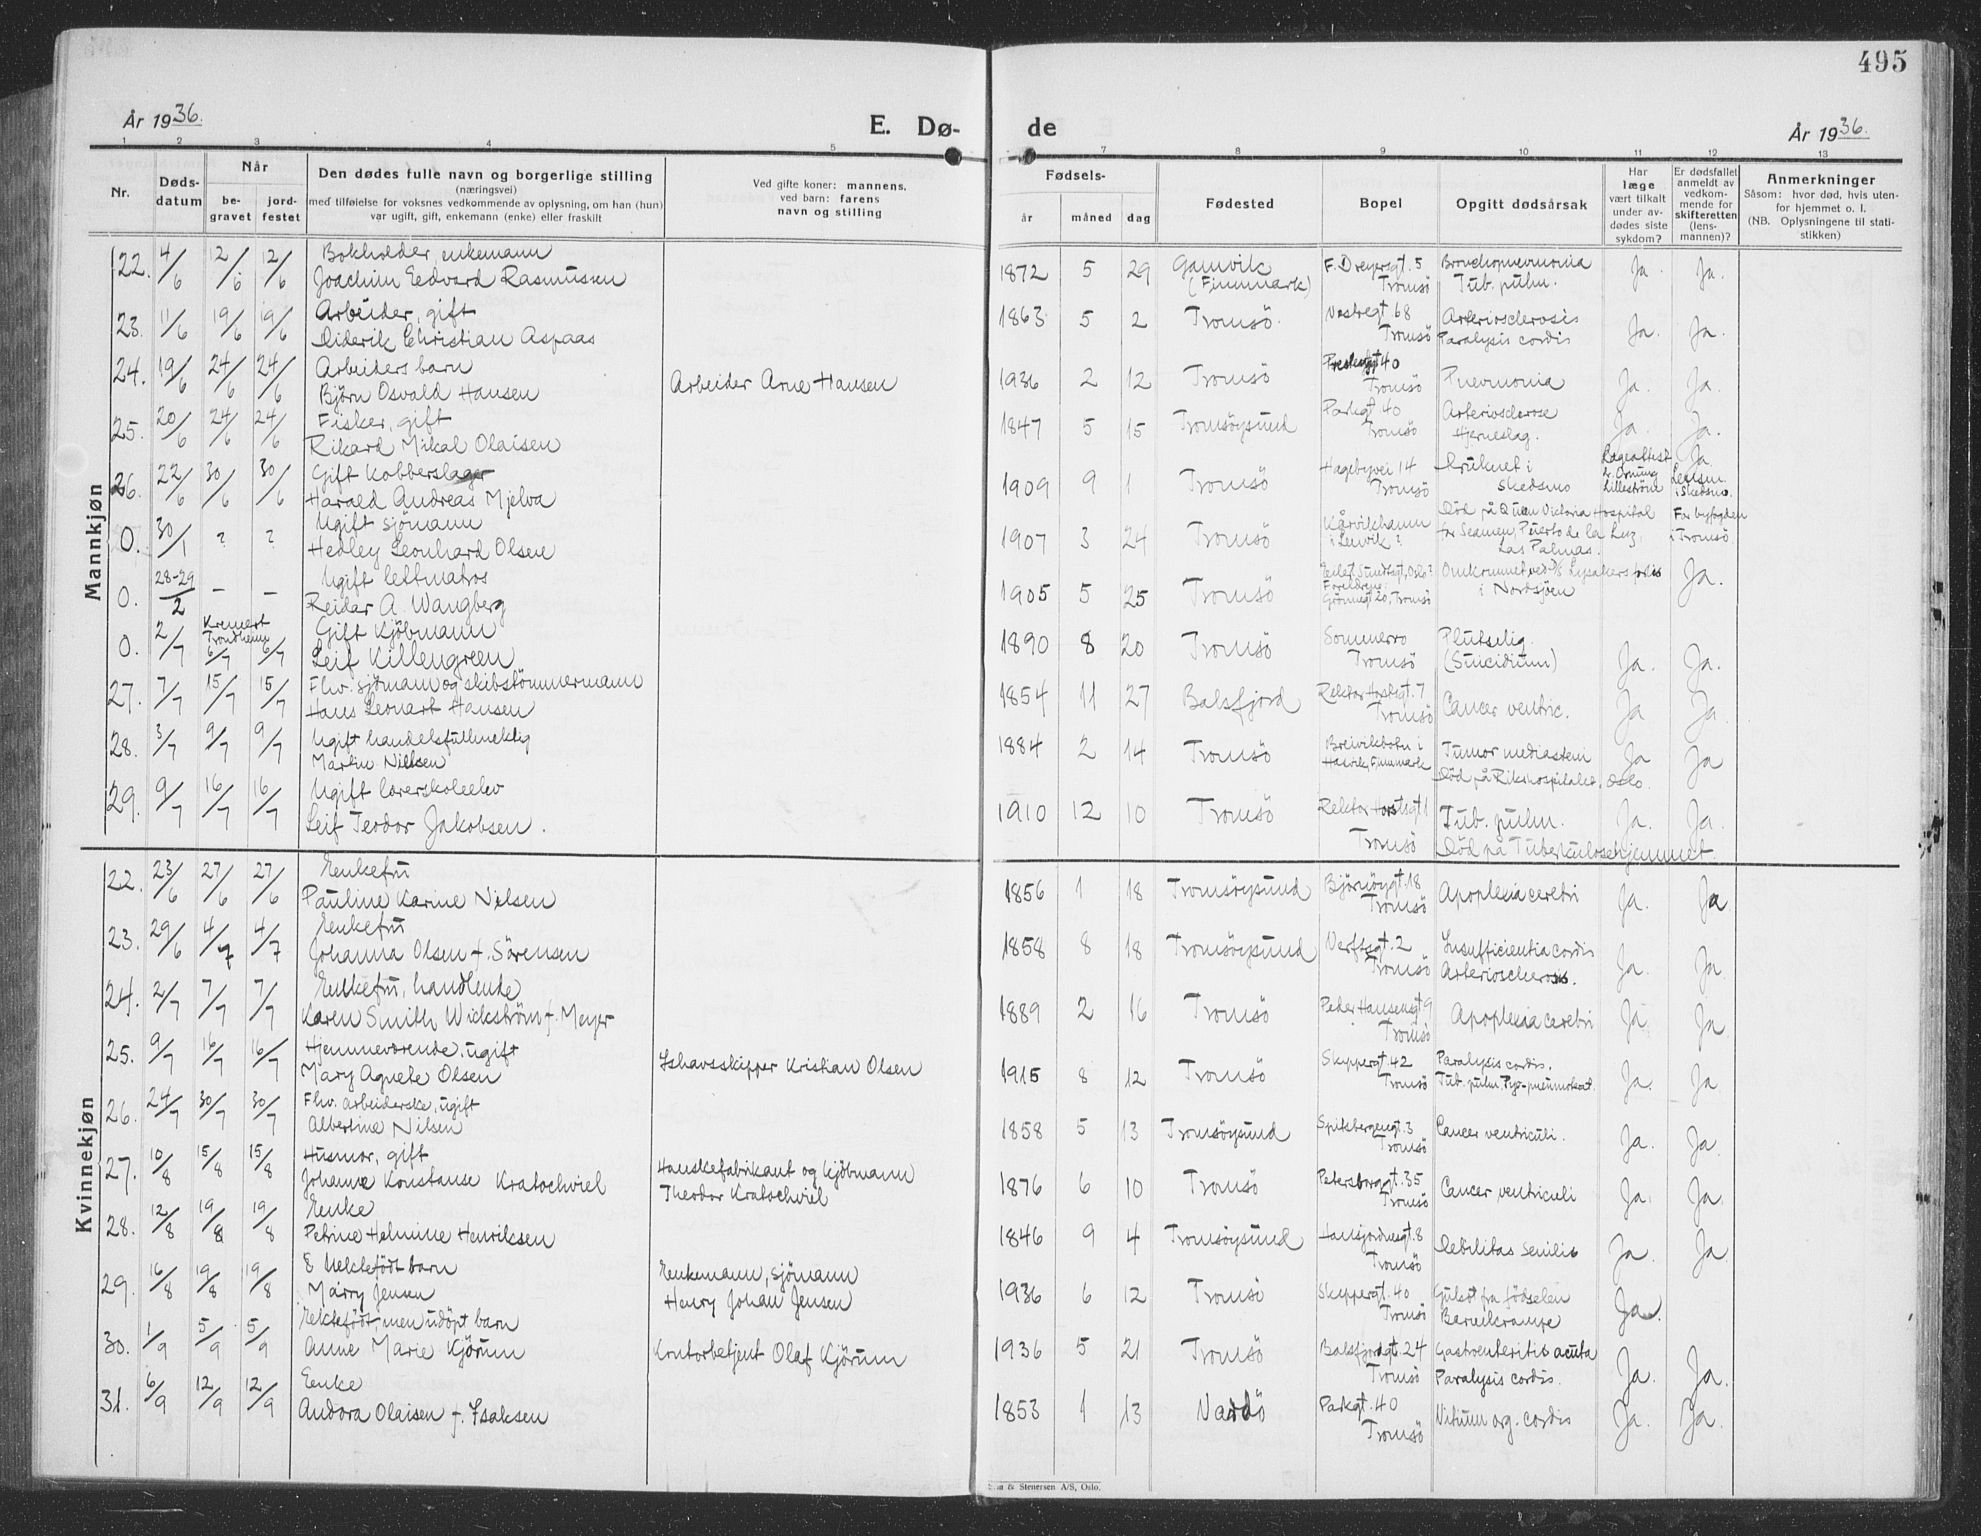 495
År 1936.
E. Dø-
de
År 1936.
1 2 3 4 5 7 8 9 10 11 12 13
Nr.
Døds-
datum
Når
be-
gravet
jord-
festet
Den dødes fulle navn og borgerlige stilling
(næringsvei)
med tilføielse for voksnes vedkommende av oplysning, om han (hun)
var ugift, gift, enkemann (enke) eller fraskilt
Ved gifte koner: mannens,
ved barn: farens
navn og stilling
Fødsels-
år måned dag
Fødested
Bopel
Opgitt dødsårsak
Har
læge
vært tilkalt
under av-
dødes siste
sykdom?
Er dødsfallet
anmeldt av
vedkom-
mende for
skifteretten
(lens-
mannen)?
Anmerkninger
Såsom: hvor død, hvis uten-
for hjemmet o. l.
(NB. Oplysningene til stati-
stikken)
Mannkjøn
22. 4/6 12/6 12/6 Bokholder, enkemann
Joachim Eedvard Rasmussen
1872 5 29 Gamvik F. Dreyersgt. 5 Bronchopnevmonia Ja. Ja.
(Finnmark) Tromsö Tub. pulm.
23. 11/6 19/6 19/6 Arbeider, gift
Diderik Christian Aspaas
1863 5 2 Tromsö. Vestregt 68 Arteriosclerosis Ja. Ja.
Tromsö Paralysis cordis
24. 19/6 24/6 24/6 Arbeiders barn
Björn Osvald Hansen Arbeider Arne Hansen
1936 2 12 Tromsö 40 Ja. Ja.
Tromsö Pnevmonia
25. 20/6 24/6 24/6 Fisker, gift
Rikard Mikal Olaisen
1847 5 15 Tromsöysund Parkgt 40 Arteriosclerose Ja. Ja.
Tromsö Hjerneslag.
26. 22/6 30/6 30/6 Gift Kobberslager
Harald Andreas Mjelva
1909 9 1 Tromsö Hagebyvei 14 Druknet i Lægeattest Ja.
Tromsö Skedsmo Lilleström Lensm. i Skedsmo.
0. 30/1 ? ? Ugift sjömann
Hedley Leonhard Olsen
1907 3 24 Tromsö Kårvikhamn Död på Queen Victoria Hospital For byfogden
i Lenvik? for Seamen, Puerto de la Luz, i Tromsö.
Las Palmas.
0. 28-29/2 – – Ugift lettmatros
Reidar A. Wangberg
1905 5 25 Tromsö Eilert Sundtsgt, Oslo? Omkommet ved D/S Lysakers forlis Ja.
Foreldrene: i Nordsjöen
Grönnegt 20, Tromsö
0. 2/7 Kremert
Trondheim
6/7 6/7 Gift Kjöbmann
Leif Killengreen
1890 8 20 Tromsö Sommerro Plutselig
Tromsö (Suicidium) Ja. Ja.
27. 7/7 15/7 15/7 Fhv. sjömann og skibstömmermann
Hans Leonart Hansen
1854 11 27 Balsfjord Rektor Horstsgt. 7 Cancer ventric. Ja Ja.
Tromsö
28. 3/7 9/7 9/7 Ugift handelsfullmektig
Martin Nielsen
1884 2 14 Tromsö Breivikbotn i Tumor mediasteni Ja Ja
Hasvik, Finnmark Död på Rikshospitalet, Oslo.
29. 9/7 16/7 16/7 Ugift lærerskoleelev
Leif Teodor Jakobsen.
1910 12 10 Tromsö Rektor Horstsgt 1 Tub. pulm. Ja. Ja.
Tromsö Död på Tuberkulosehjemmet.
Kvinnekjøn
22. 23/6 27/6 27/6 Enkefru
Pauline Karine Nilsen
1856 1 18 Tromsöysund Björnöygt. 18 Apoplexia cerebri Ja. Ja.
Tromsö
23. 29/6 4/7 4/7 Enkefru
Johanna Olsen f. Sörensen
1858 8 18 Tromsöysund Verftsgt. 2 Insufficientia cordis Ja. Ja.
Tromsö Arteriosclerosis.
24. 2/7 7/7 7/7 Enkefru, handlende
Karen Smith Wickström f. Meyer
1889 2 16 Tromsö Peder Hansensgt 9 Apoplexia cerebri Ja. Ja
Tromsö
25. 9/7 16/7 16/7 Hjemmeværende, ugift
Mary Agnete Olsen Ishavsskipper Kristian Olsen
1915 8 12 Tromsö Skyppergt. 42 Paralysis cordis. Ja. Ja
Tromsö Tub. pulm. Pyo-pneumothorax.
26. 24/7 30/7 30/7 Fhv. arbeiderske, ugift
Albertine Nilsen
1858 5 13 Tromsöysund Spitsbergengt. 3 Cancer ventriculi. Ja. Ja.
Tromsö
27. 10/8 15/8 15/8 Husmor, gift Hanskefabrikant og kjöbmann
Johanne Konstanse Kratochwiel Theodor Kratochwiel
1876 6 10 Tromsö Petersborggt. 35 Cancer ventriculi Ja. Ja.
Tromsö
28. 12/8 19/8 19/8 Enke
Petrine Helmine Henriksen
1846 9 4 Tromsöysund Hansjordnesgt. 8 Debilitas senilis Ja. Ja
Tromsö
29. 16/8 19/8 19/8 Ektefödt barn Enkemann, sjömann
Marry Jensen Henry Johan Jensen
1936 6 12 Tromsö Skippergt. 40 Gulsot fra födselen Ja.
Tromsö Barnekrampe
30. 1/9 5/9 5/9 Ektefödt, men udöpt barn
Anne Marie Kjörum Kontorbetjent Olaf Kjörum
1936 5 21 Tromsö Balsfjordgt. 24 Gastroenteritis acuta Ja. Ja.
Tromsö Paralysis cordis.
31. 6/9 12/9 12/9 Enke
Andora Olaisen f. Isaksen
1853 1 13 Vardö Parkgt. 40 Vitium org. cordis Ja. Ja.
Tromsö
& Stenersen A/S, Oslo.